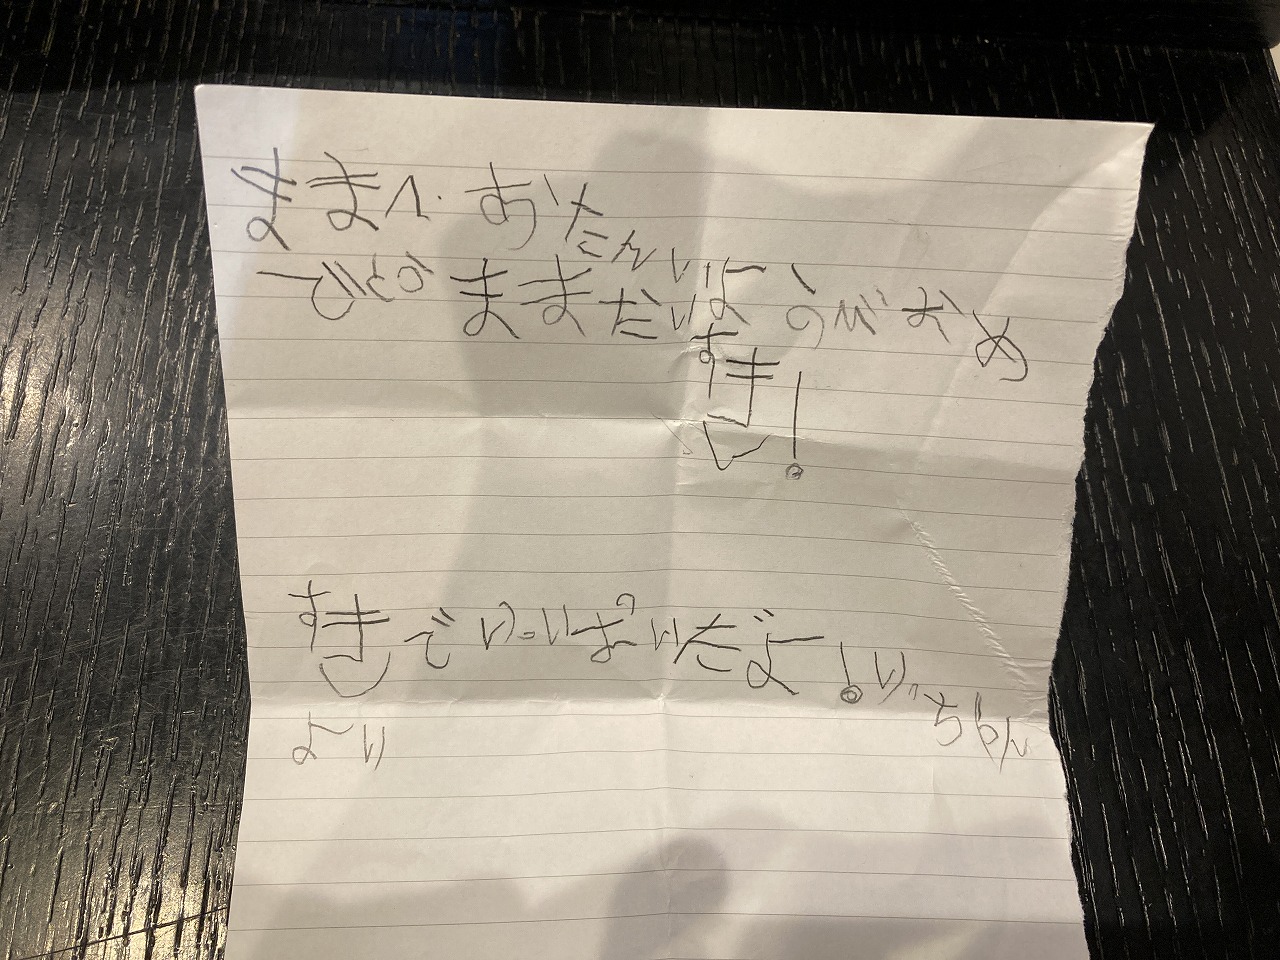 ままへ.おたんじょうびおめ
でとうままだい
すき!
すきでいっぱいだよ!りっちゃん
より